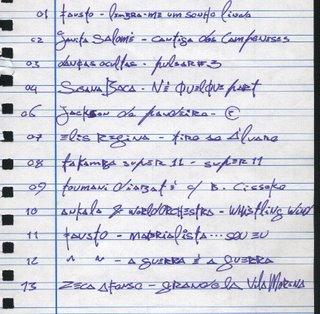 01 fausto - lembra-me um sonho lindo
02 Janita Salomé - cantiga dos camponeses
03 danças ocultas - pulsar #3
04 Susana Baca - N'É QUELQUE part
06 Jackson do pandeiro -
07 Elis Regina - tiro ao Álvaro
08 takamba super 11 - super 11
09 toumani diabaté c/ B. Cissoko
10 ankala & WORLD ORCHESTRA - WHISTLING WIND
11 fausto - MADRIALISTA... SOU EU
12 " " - a guerra é a guerra
13 ZECA AFONSO - GRANDOLA VILA MORENA